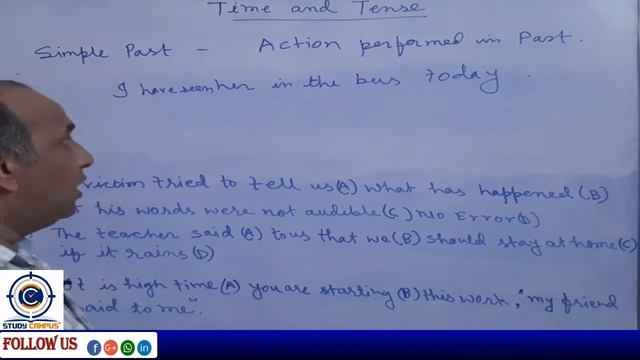 Time and Tense
Simple Past - Action performed in Past.
I have seen her in the bus today.
victim tried to tell us (A) what has happened (B)
his words were not audible (C) No Error (D)
The teacher said (A) to us that we (B) should stay at home (C)
if it rains (D)
is high time (A) you are starting (B) this work, "my friend
said to me".
STUDY CAMPUS
FOLLOW US